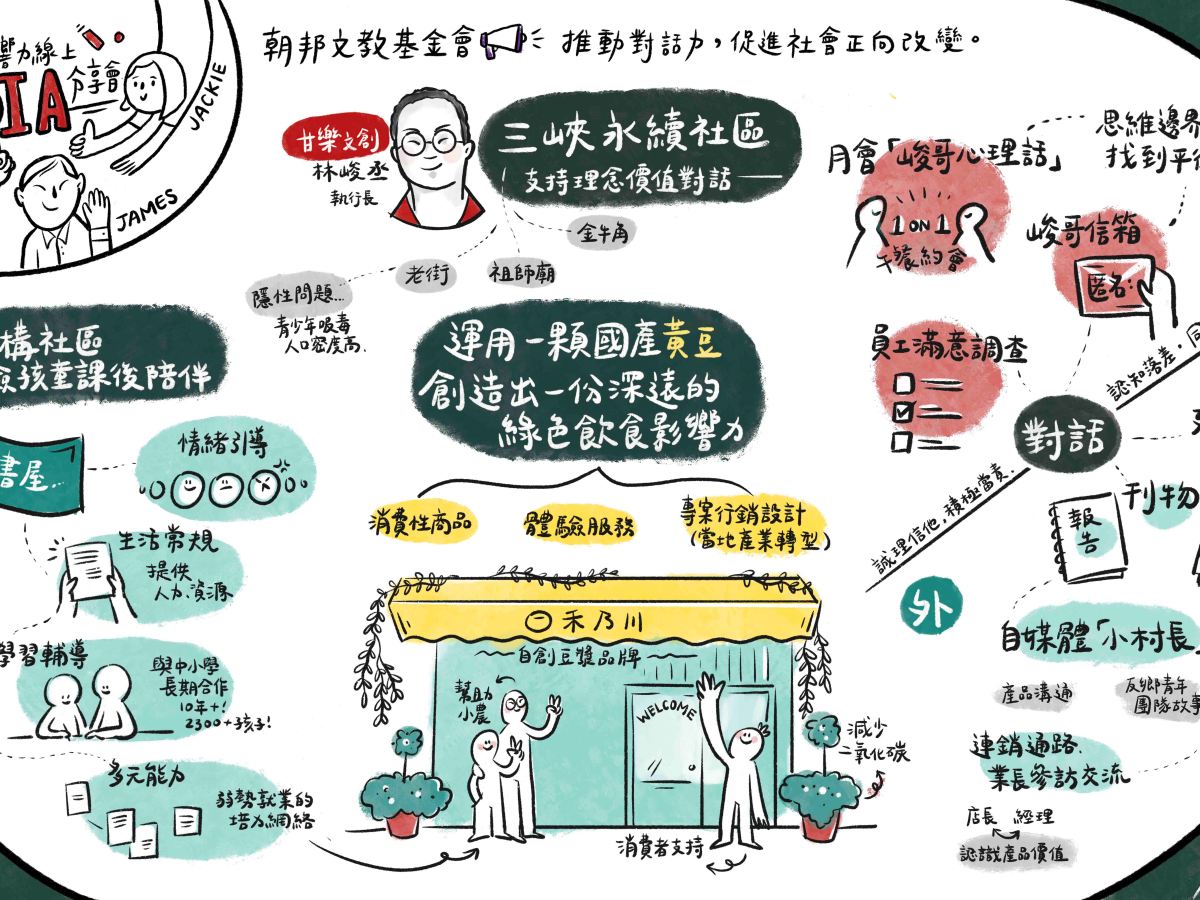 響力線上
DIA
分享會
JACKIE
JAMES
朝邦文教基金會 推動對話力，促進社會正向改變。
甘樂文創
林峻丞
執行長
三峽永續社區
支持理念價值對話
金牛角
老街
祖師廟
隱性問題...
青少年吸毒
人口密度高.
構社區
孩童課後陪伴
書屋...
情緒引導
生活常規
提供
人力.資源
學習輔導
與中小學
長期合作
10年+!
2300+孩子!
多元能力
弱勢就業的
培力網絡
運用一顆國產黃豆
創造出一份深遠的
綠色飲食影響力
消費性商品
體驗服務
專案行銷設計
(當地產業轉型)
禾乃川
自創豆漿品牌
幫助
小農
WELCOME
減少
二氧化碳
消費者支持
月會「峻哥心理話」
1 ON 1
午餐約會
思維邊界
找到平衡
峻哥信箱
匿名:
員工滿意調查
認知落差.
對話
誠理信他,積極當責.
刊物
報告
外
自媒體「小村長」
產品溝通
返鄉青年
團隊故事
連鎖通路.
業長參訪交流
店長 經理
認識產品價值